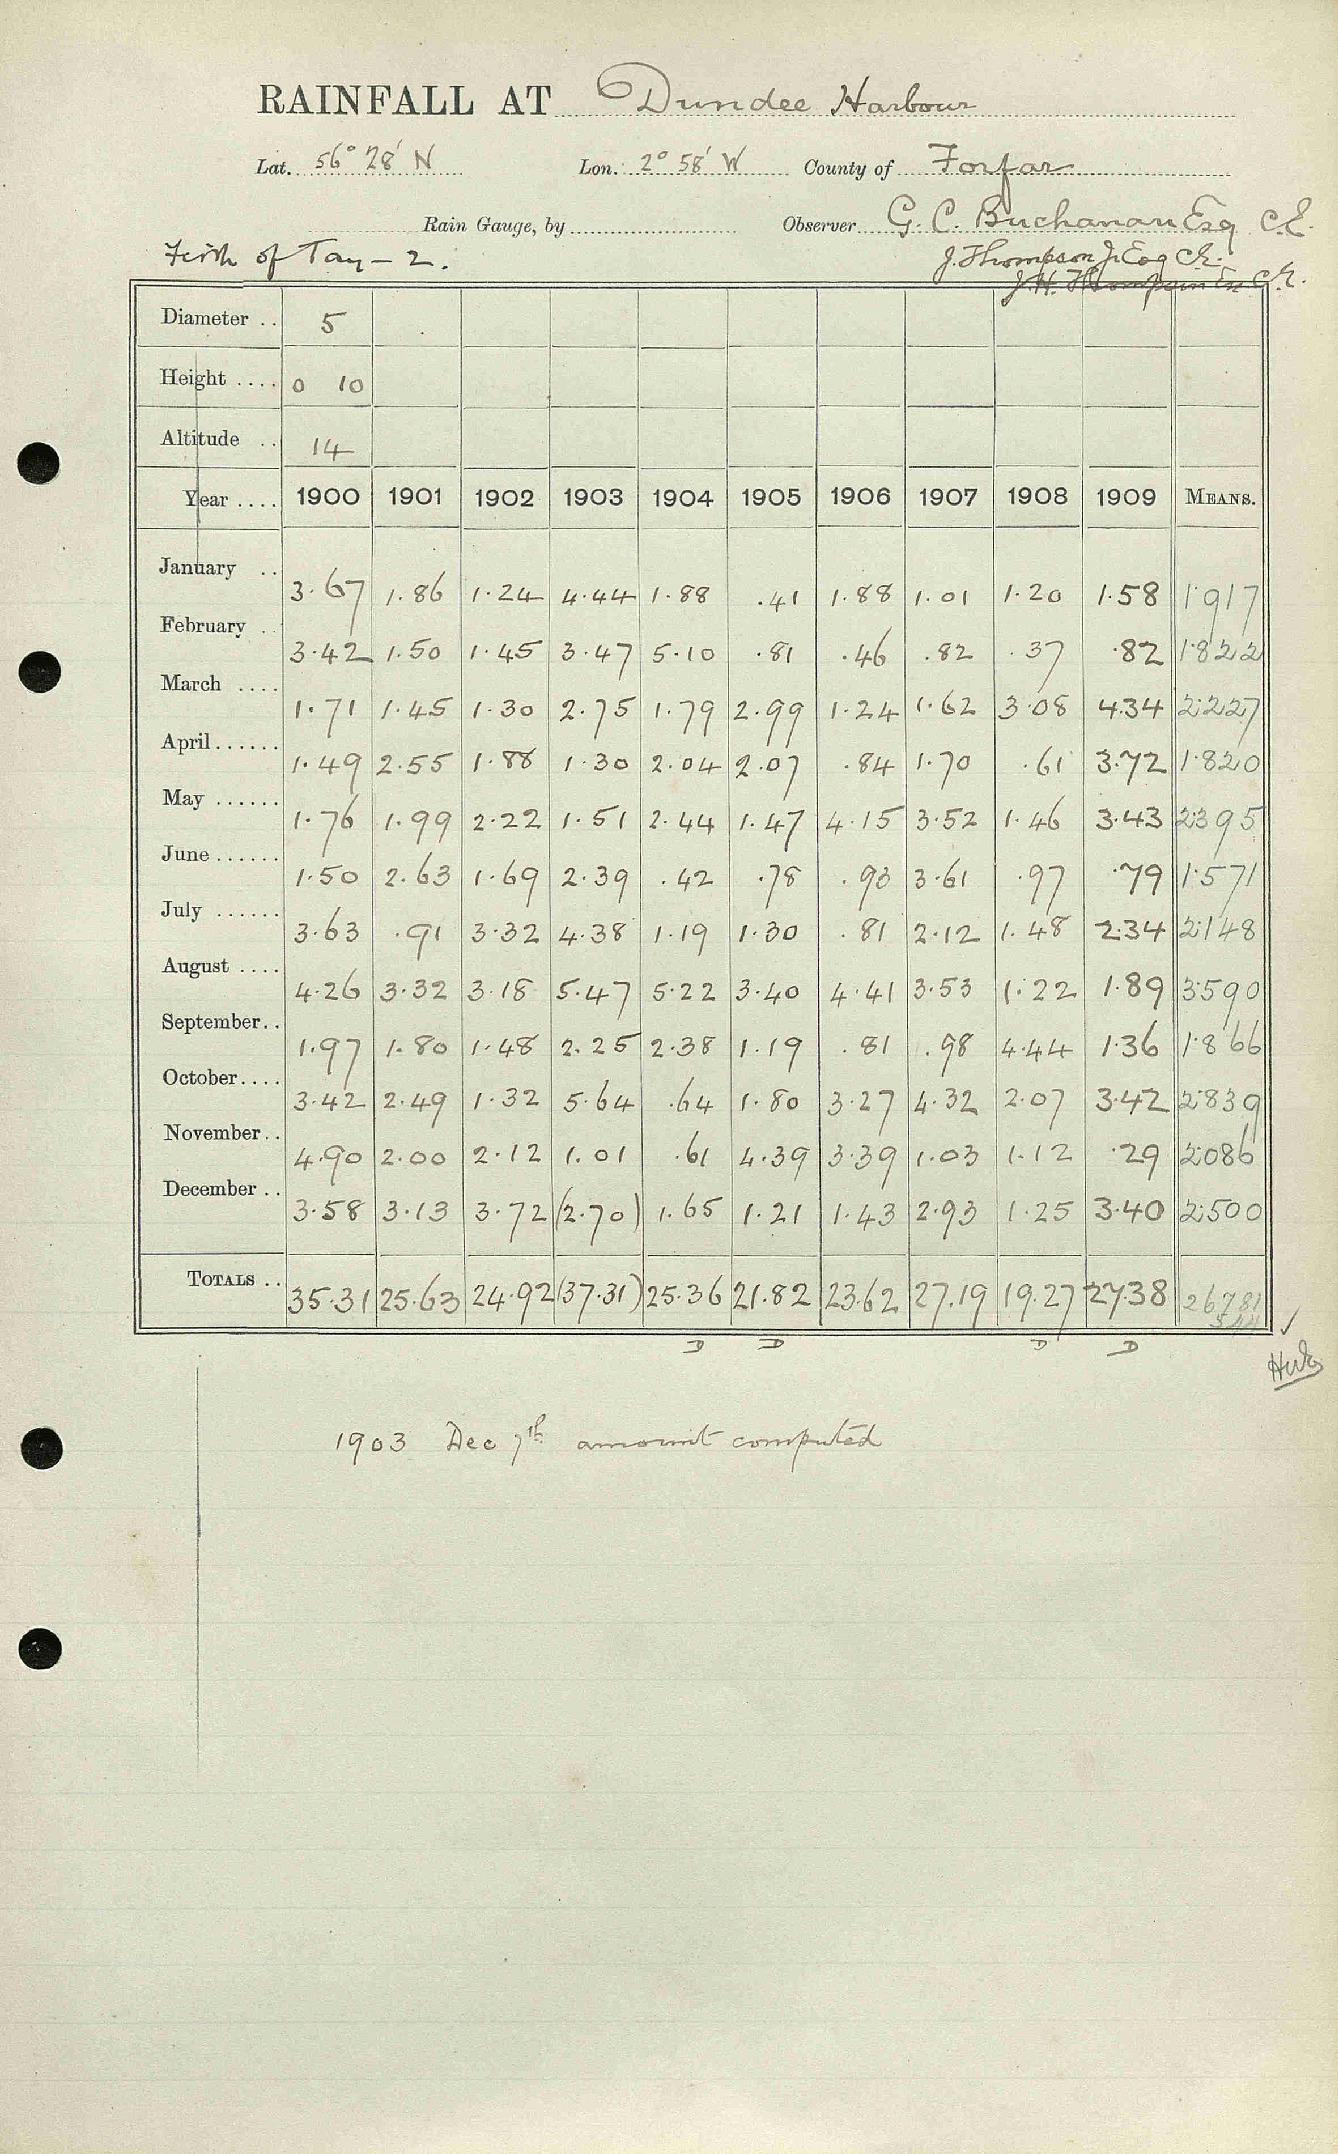 RAINFALL AT Dundee Harbour
Lat. 56° 28' N Lon. 2° 58' W County of Forfar
Rain Gauge, by Observer G. C. Buchanan Esq C.E.
Firth of Tay - 2. J. Thompson Jr Esq C.E.
J. H. Thompson Esq C.E.
Diameter .. 5
Height .... 0 10
Altitude .. 14
Year .... 1900 1901 1902 1903 1904 1905 1906 1907 1908 1909 MEANS.
January .. 3.67 1.86 1.24 4.44 1.88 .41 1.88 1.01 1.20 1.58 1.917
February .. 3.42 1.50 1.45 3.47 5.10 .81 .46 .82 .37 .82 1.822
March .... 1.71 1.45 1.30 2.75 1.79 2.99 1.24 1.62 3.08 4.34 2.227
April...... 1.49 2.55 1.88 1.30 2.04 2.07 .84 1.70 .61 3.72 1.820
May ...... 1.76 1.99 2.22 1.51 2.44 1.47 4.15 3.52 1.46 3.43 2.395
June ...... 1.50 2.63 1.69 2.39 .42 .78 .93 3.61 .97 .79 1.571
July ...... 3.63 .91 3.32 4.38 1.19 1.30 .81 2.12 1.48 2.34 2.148
August .... 4.26 3.32 3.18 5.47 5.22 3.40 4.41 3.53 1.22 1.89 3.590
September.. 1.97 1.80 1.48 2.25 2.38 1.19 .81 .98 4.44 1.36 1.866
October.... 3.42 2.49 1.32 5.64 .64 1.80 3.27 4.32 2.07 3.42 2.839
November.. 4.90 2.00 2.12 1.01 .61 4.39 3.39 1.03 1.12 .29 2.086
December .. 3.58 3.13 3.72 (2.70) 1.65 1.21 1.43 2.93 1.25 3.40 2.500
TOTALS .. 35.31 25.63 24.92 (37.31) 25.36 21.82 23.62 27.19 19.27 27.38 26.781
D D D D
1903 Dec 7th amount computed